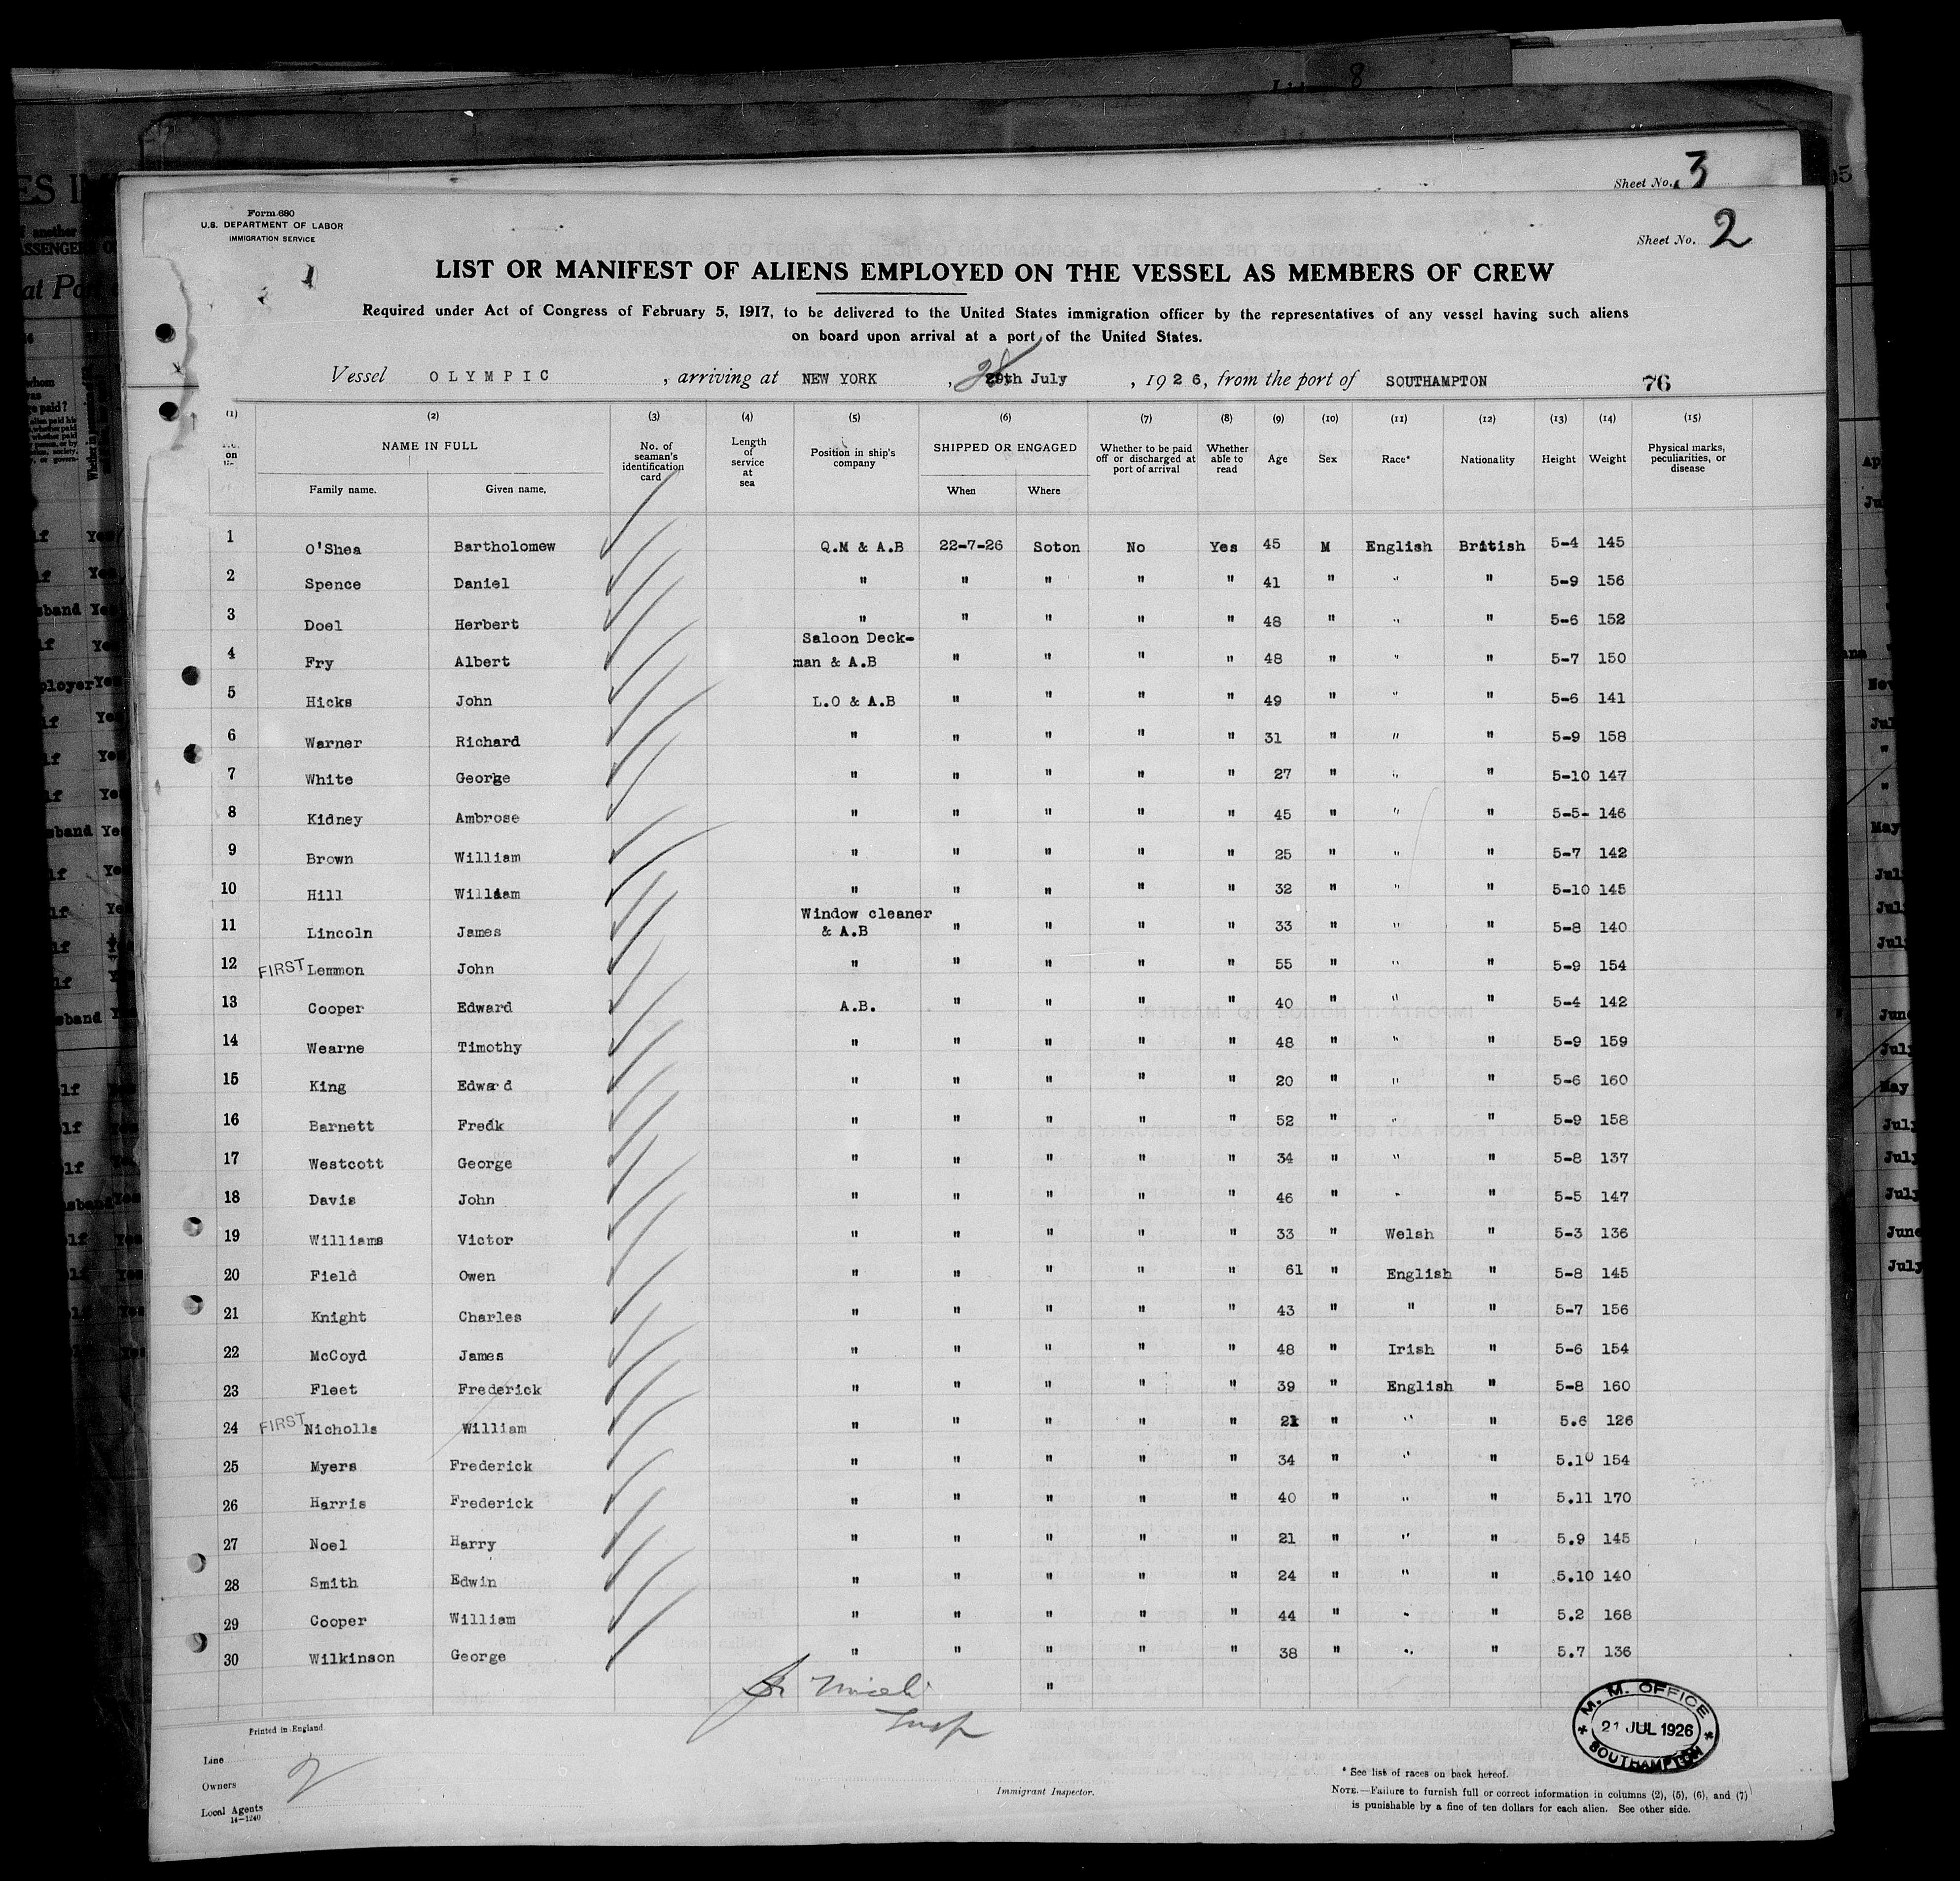 Sheet No. 3
Form 680
U.S. DEPARTMENT OF LABOR
IMMIGRATION SERVICE
Sheet No. 2
LIST OR MANIFEST OF ALIENS EMPLOYED ON THE VESSEL AS MEMBERS OF CREW
Required under Act of Congress of February 5, 1917, to be delivered to the United States immigration officer by the representatives of any vessel having such aliens
on board upon arrival at a port of the United States.
Vessel OLYMPIC, arriving at NEW YORK, 28 29th July, 1926, from the port of SOUTHAMPTON 76
(1) (2) (3) (4) (5) (6) (7) (8) (9) (10) (11) (12) (13) (14) (15)
on NAME IN FULL Family name. Given name. No. of seaman's identification card Length of service at sea Position in ship's company SHIPPED OR ENGAGED When Where Whether to be paid off or discharged at port of arrival Whether able to read Age Sex Race* Nationality Height Weight Physical marks, peculiarities, or disease
1 O'Shea Bartholomew Q.M & A.B 22-7-26 Soton No Yes 45 M English British 5-4 145
2 Spence Daniel " " " " " 41 " " " 5-9 156
3 Doel Herbert " " " " " 48 " " " 5-6 152
4 Fry Albert Saloon Deck-man & A.B " " " " 48 " " " 5-7 150
5 Hicks John L.O & A.B " " " " 49 " " " 5-6 141
6 Warner Richard " " " " " 31 " " " 5-9 158
7 White George " " " " " 27 " " " 5-10 147
8 Kidney Ambrose " " " " " 45 " " " 5-5- 146
9 Brown William " " " " " 25 " " " 5-7 142
10 Hill William " " " " " 32 " " " 5-10 145
11 Lincoln James Window cleaner & A.B " " " " 33 " " " 5-8 140
12 FIRST Lemmon John " " " " " 55 " " " 5-9 154
13 Cooper Edward A.B. " " " " 40 " " " 5-4 142
14 Wearne Timothy " " " " " 48 " " " 5-9 159
15 King Edward " " " " " 20 " " " 5-6 160
16 Barnett Fredk " " " " " 52 " " " 5-9 158
17 Westcott George " " " " " 34 " " " 5-8 137
18 Davis John " " " " " 46 " " " 5-5 147
19 Williams Victor " " " " " 33 " Welsh " 5-3 136
20 Field Owen " " " " " 61 " English " 5-8 145
21 Knight Charles " " " " " 43 " " " 5-7 156
22 McCoyd James " " " " " 48 " Irish " 5-6 154
23 Fleet Frederick " " " " " 39 " English " 5-8 160
24 FIRST Nicholls William " " " " " 21 " " " 5.6 126
25 Myers Frederick " " " " " 34 " " " 5.10 154
26 Harris Frederick " " " " " 40 " " " 5.11 170
27 Noel Harry " " " " " 21 " " " 5.9 145
28 Smith Edwin " " " " " 24 " " " 5.10 140
29 Cooper William " " " " " 44 " " " 5.2 168
30 Wilkinson George " " " " " 38 " " " 5.7 136
"
Insp
M. M. OFFICE
21 JUL 1926
SOUTHAMPTON
Printed in England.
Line
Owners 2
Local Agents
14-1240
Immigrant Inspector.
* See list of races on back hereof.
NOTE.—Failure to furnish full or correct information in columns (2), (5), (6), and (7)
is punishable by a fine of ten dollars for each alien. See other side.